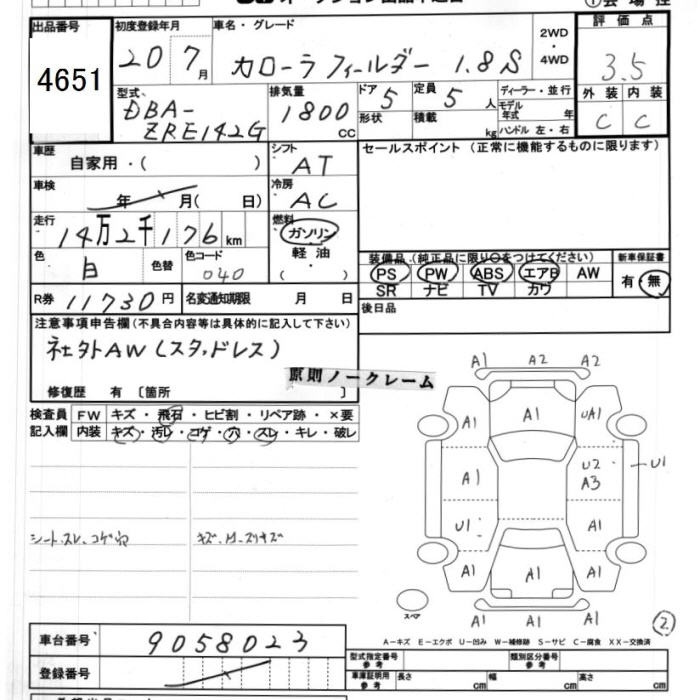 出品番号 初度登録年月 車名・グレード 2WD・4WD 評価点
4651 20 7月 カローラ フィールダー 1.8S 3.5
外装 内装
C C
型式 DBA-ZRE142G 排気量 1800 CC ドア 5 定員 5 人 ディーラー・並行
形状 積載 kg モデル年式 年
ハンドル 左・右
車歴 自家用・( ) シフト AT セールスポイント (正常に機能するものに限ります)
車検 年 月( 日) 冷房 AC
走行 14万2千176km 燃料 ガソリン・軽油・( )
色 白 色替 色コード 040
装備品(純正品に限り○をつけてください) 新車保証書
PS PW ABS エアB AW 有・無
SR ナビ TV カワ
R券 11730円 名変通知期限 月 日 後日品
注意事項申告欄(不具合内容等は具体的に記入して下さい)
社外AW(スタッドレス)
原則ノークレーム
修復歴 有 〔箇所 〕
検査員 FW キズ・飛石・ヒビ割・リペア跡・×要
記入欄 内装 キズ・汚レ・コゲ・穴・スレ・キレ・破レ
シートスレ、コゲ穴
A1 A2 A2
A1 A1 UA1
A1 U2 A3 U1
U1 A1
A1 A1 A1
A1 A1 A1
スペア
②
A-キズ E-エクボ U-凹み W-補修跡 S-サビ C-腐食 XX-交換済
車台番号 9058023 型式指定番号 参考 類別区分番号 参考
登録番号 車庫証明用 参考 長さ cm 幅 cm 高さ cm